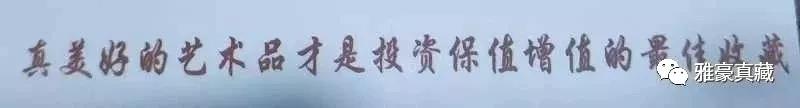 真美好的艺术品才是投资保值增值的最佳收藏
雅豪真藏